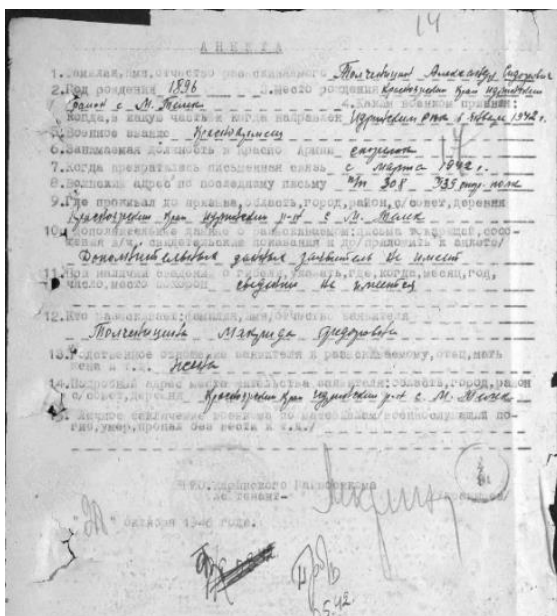 14
АНКЕТА
1. Фамилия, имя, отчество разыскиваемого Толченицин Александр Сидорович
2. Год рождения 1896 3. Место рождения Красноярский край Идринский
район с М. Телек 4. Каким военком призван:
когда, в какую часть и когда направлен Идринским РВК в январе 1942 г.
5. Военное звание Красноармеец
6. Занимаемая должность в Красно Армии
7. Когда прекратилась письменная связь с марта 1942 г.
8. Воинский адрес по последнему письму п/п 308 полк
9. Где проживал до призыва, область, город, район, с/совет, деревня
Красноярский край Идринский р-н с М. Телек
10. Дополнительные данные о разыскиваемом: письма товарищей, сооб-
жения в/ч, свидетельские показания и др/приложить к анкете/
Дополнительных данных заявитель не имеет
11. При наличии сведения о гибели, указать, где, когда, месяц, год,
число, место похорон сведений не имеется
12. Кто разыскивает: фамилия, имя, отчество заявителя
Толченицина Макрида Федоровна
13. Родственное отношение заявителя к разыскиваемому, отец, мать
жена и т.д. жена
14. Подробный адрес места жительства заявителя: область, город, район
с/совет, деревня Красноярский край Идринский р-н с М. Телек
Личное заключение военкома по материалам/военнослужащий по-
гиб, умер, пропал без вести и т.д./
Идринского Райвоенкома
лейтенант-
октября 1946 года.